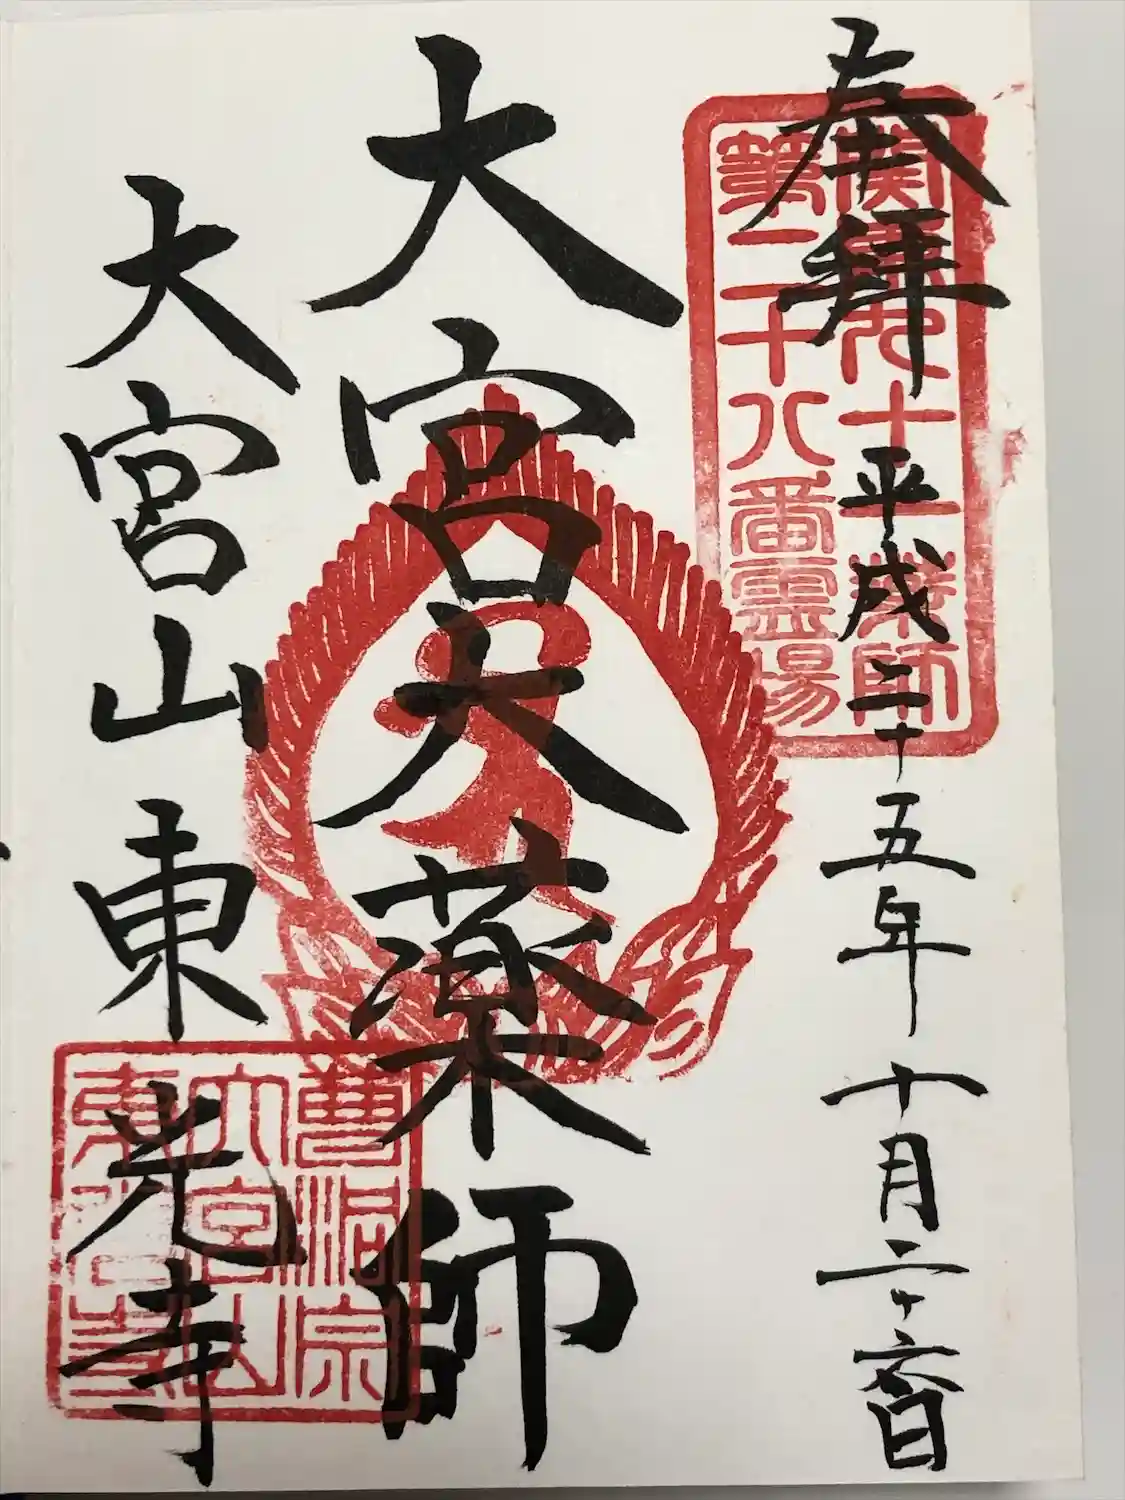 奉拝
平成二十五年十月二十六日
関東九十一薬師
第二十八番霊場
大宮大薬師
大宮山東光寺
曹洞宗
大宮山
東光寺